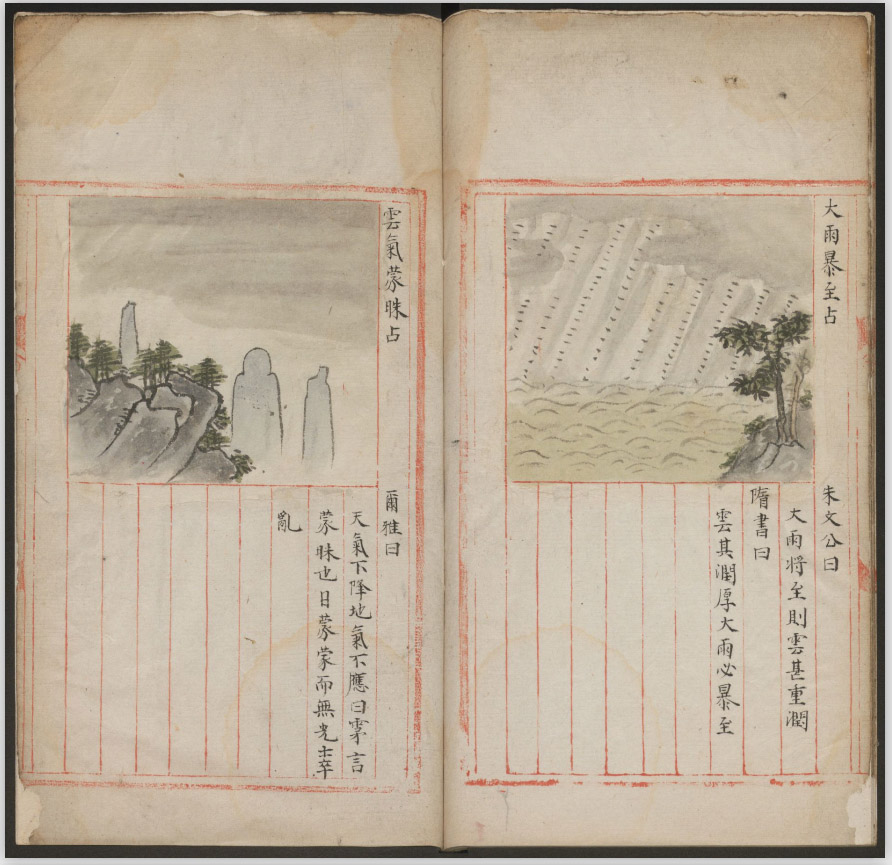 大雨暴至占
朱文公曰
大雨将至則雲甚重潤
隋書曰
雲其潤厚大雨必暴至
雲氣蒙昧占
爾雅曰
天氣下降地氣不應曰雺言
蒙昧也日蒙蒙而無光士卒
亂